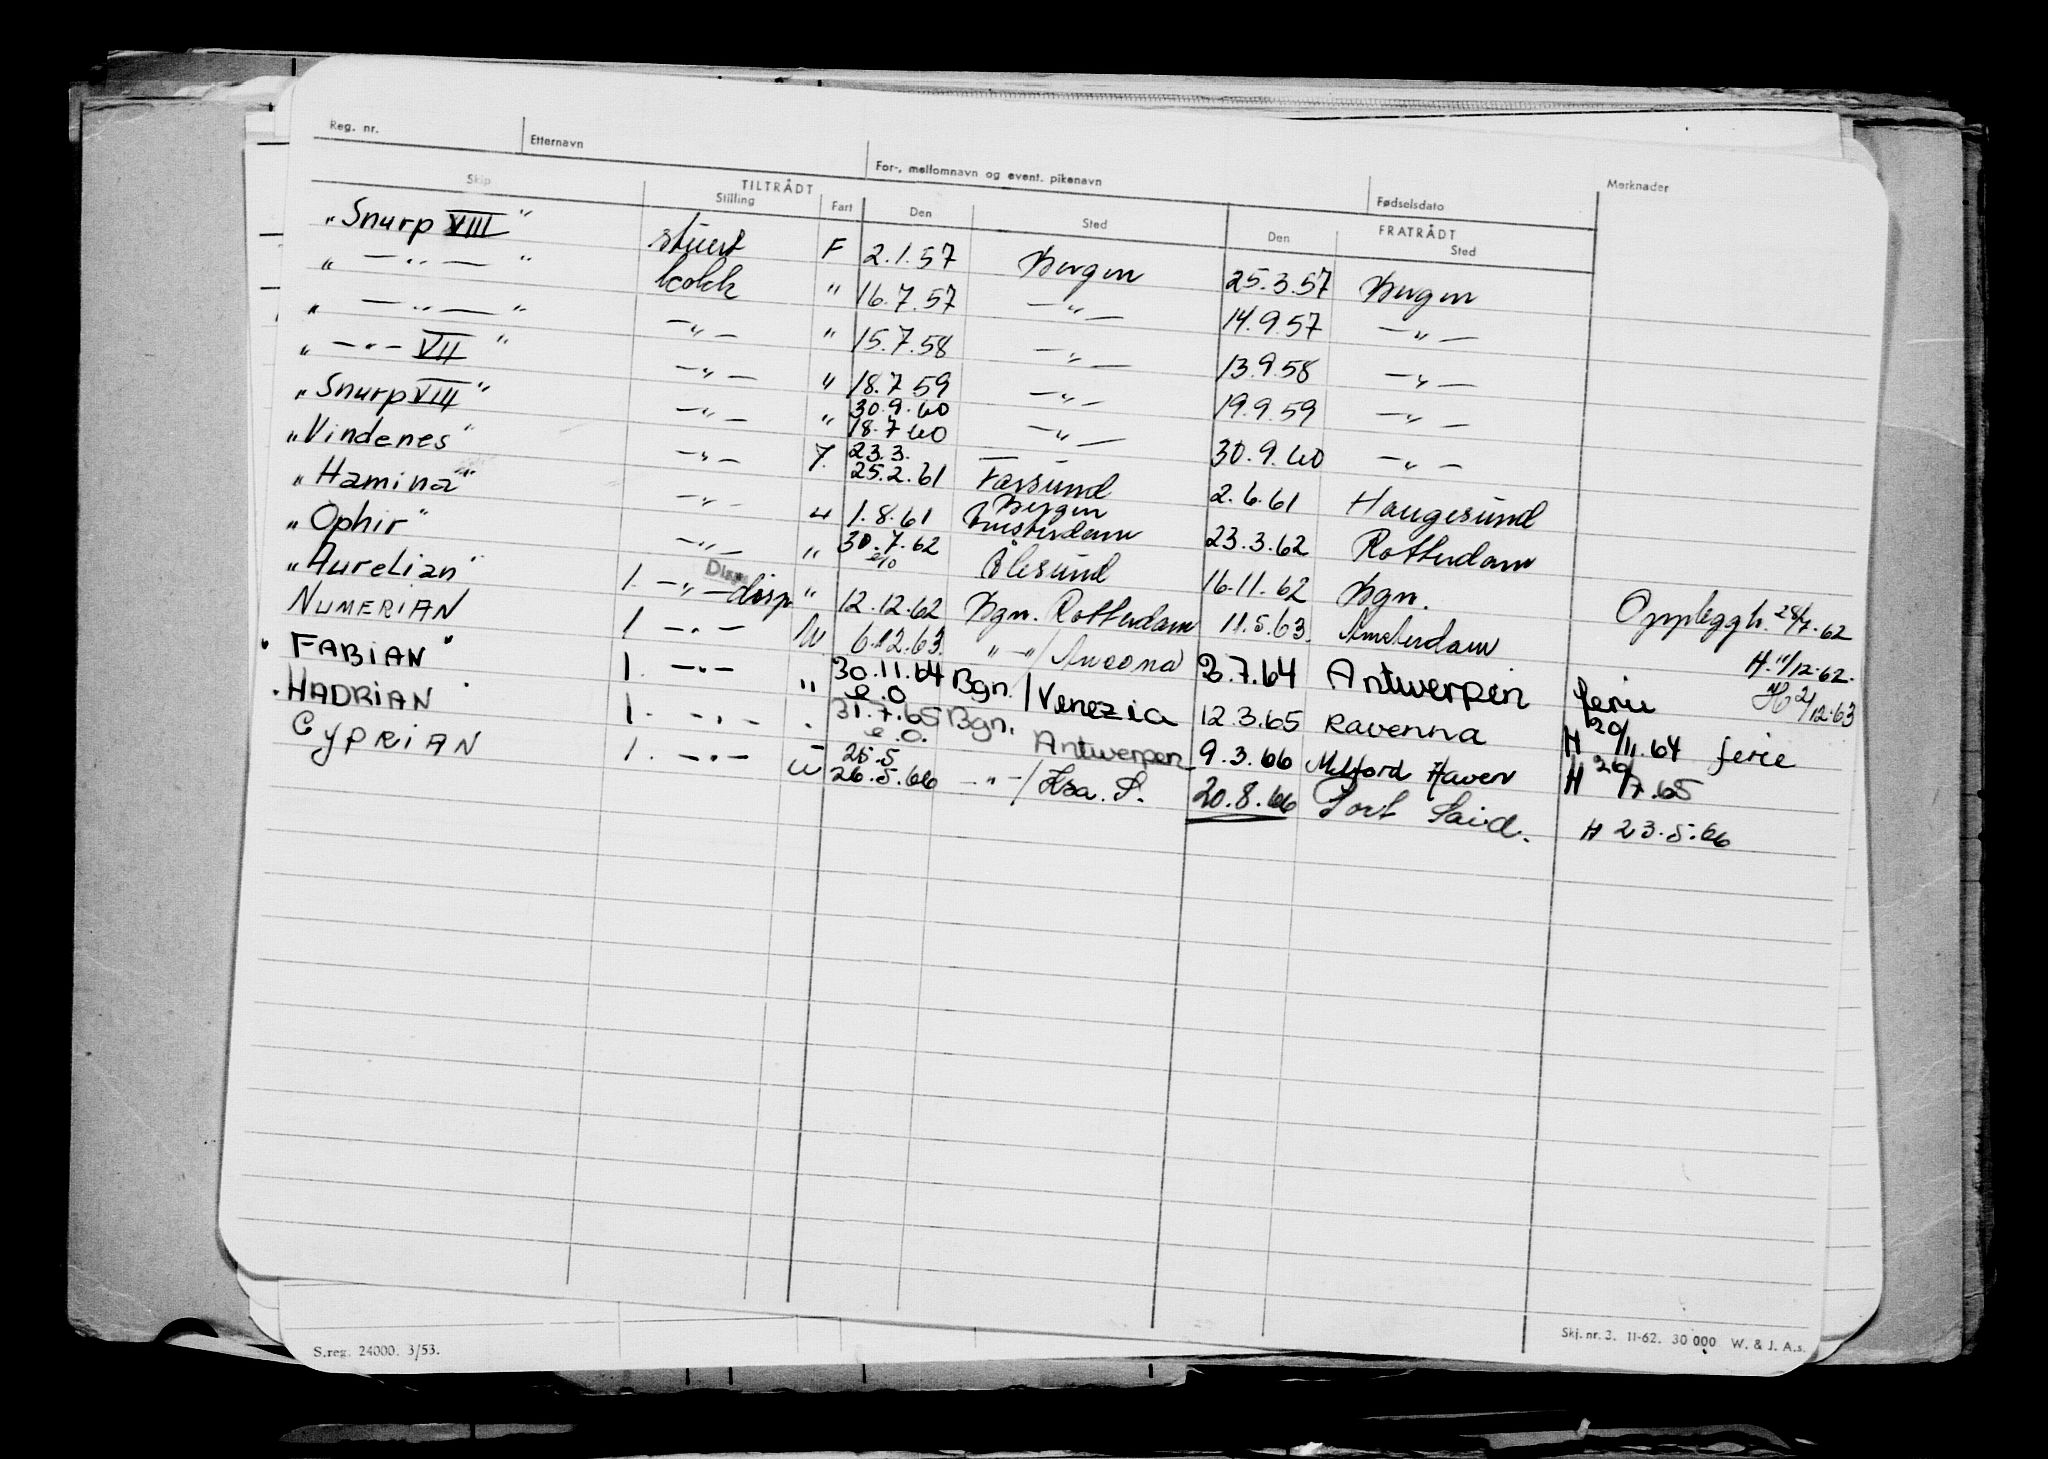 Reg. nr. Etternavn For-, mellomnavn og event. pikenavn Fødselsdato Merknader
TILTRÅDT FRATRÅDT
Skip Stilling Fart Den Sted Den Sted
"Snurp VIII" stuert F 2.1.57 Bergen 25.3.57 Bergen
" — " — " kokk " 16.7.57 — " — 14.9.57 — " —
" — " — " — " — " 15.7.58 — " — 13.9.58 — " —
" — " — VII " — " — " 18.7.59 — " — 19.9.59 — " —
"Snurp VIII" — " — " 30.9.60 18.7.60 — " — 30.9.60 — " —
"Vindenes" — " — 23.3. 25.2.61 Farsund 2.6.61 Haugesund
"Hamina" — " — " 1.8.61 Bergen Amsterdam 23.3.62 Rotterdam
"Ophir" — " — " 30.7.62 e/o Ålesund 16.11.62 Bgn. Opplеggh. 28/7-62
"Aurelian" 1. — " — disp " 12.12.62 Bgn. Rotterdam 11.5.63. Amsterdam H. 11/12-62.
NUMERIAN 1 — " — W 6.12.63. " — " / Ancona 3.7.64 Antwerpen ferie H 2/12-63
"FABIAN" 1. — " — " 30.11.64 e.o Bgn. / Venezia 12.3.65 Ravenna H 20/11.64 ferie
"HADRIAN" 1. — " — " 31.7.65 e.o. Bgn. Antwerpen 9.3.66 Milford Haven H 20/7.65
CYPRIAN 1. — " — W 25.5 26.5.66 — " — / Kra. S. 20.8.66 Port Said. H 23.5.66
S.reg. 24000. 3/53. Skj. nr. 3. 11-62. 30 000 W. & J. A.s.